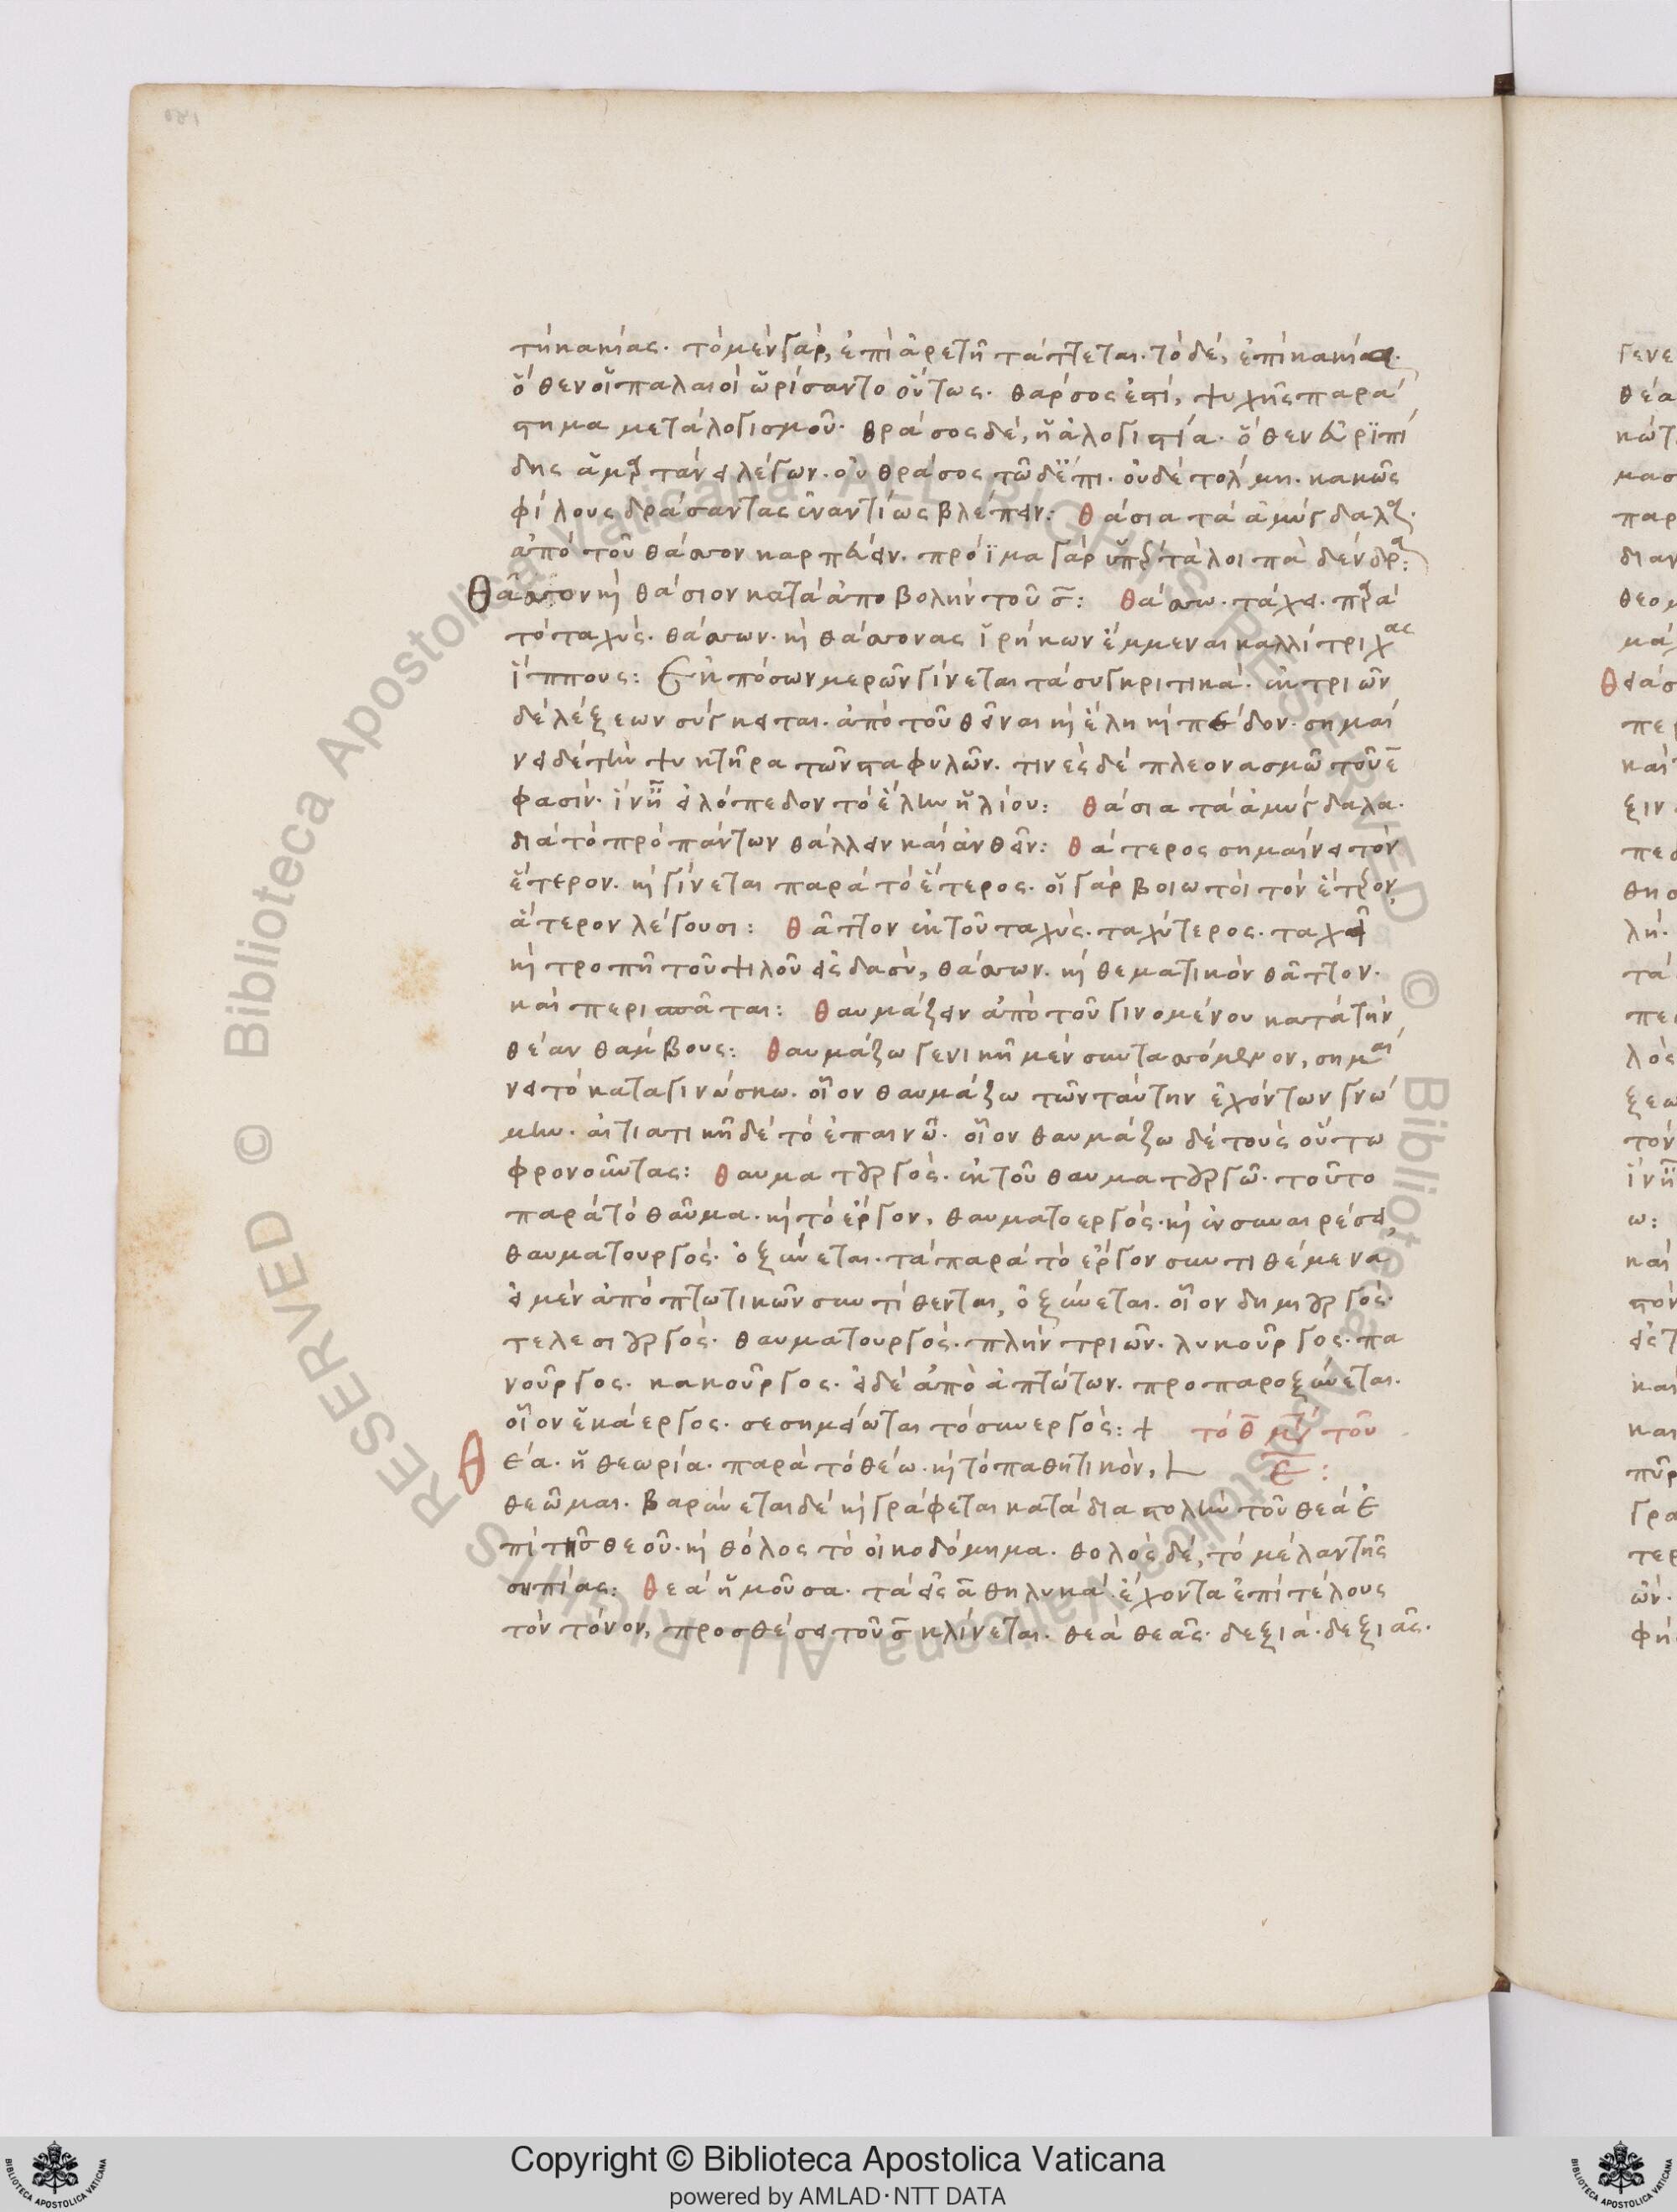 τὴν κακίας. τὸ μὲν γὰρ, ἐπὶ ἀρετῆ τάττεται. τὸ δὲ, ἐπὶ κακίας.
ὅθεν οἱ παλαιοὶ ὡρίσαντο οὕτως. θάρσος ἐστὶ, ψυχῆς παρά
στημα μετὰ λογισμοῦ. θράσος δὲ, ἡ ἀλογιστία. ὅθεν εὐριπί
δης ἁμαρτάνει λέγων. οὐ θράσος τῶδέ ἐστι. οὐδὲ τόλμη. κακῶς
φίλους δράσαντας ἐναντίως βλέπειν: θάσια τὰ ἀμύγδαλα.
ἀπὸ τοῦ θάσσον καρπεύειν. πρόϊμα γὰρ ὑπὲρ τὰ λοιπὰ δένδρα:
θᾶσσον καὶ θάσιον κατὰ ἀποβολὴν τοῦ σ: θάσσω. τάχει. παρὰ
τὸ ταχύς. θάσσων. καὶ θάσσονας ἰρήκων ἔμμεναι καλλίτριχας
ἵππους: ἐκ πόσων μερῶν γίνεται τὰ συγκριτικά. ἐκ τριῶν
δὲ λέξεων σύγκειται. ἀπὸ τοῦ θεῖναι καὶ ἕλη καὶ πέδον. σημαί
νει δὲ τὴν ψυκτῆρα τῶν σταφυλῶν. τινὲς δὲ πλεονασμῶ τοῦ ε
φασίν. ἵν ἦ εἱλόπεδον τὸ ἕλην ἡλίου: θάσια τὰ ἀμύγδαλα.
διὰ τὸ πρὸ πάντων θάλλειν καὶ ἀνθεῖν: θάτερος σημαίνει τὸν
ἕτερον. καὶ γίνεται παρὰ τὸ ἕτερος. οἱ γὰρ βοιωτοὶ τὸν ἕτερον,
ἅτερον λέγουσι: θᾶττον ἐκ τοῦ ταχύς. ταχύτερος. ταχεῖ
καὶ τροπῆ τοῦ ψιλοῦ εἰς δασὺ, θάσσων. καὶ θεματικὸν θᾶττον.
καὶ περισπᾶται: θαυμάζειν ἀπὸ τοῦ γινομένου κατὰ τὴν
θέαν θάμβους: θαυμάζω γενικῆ μὲν συντασσόμενον, σημαί
νει τὸ καταγινώσκω. οἷον θαυμάζω τῶν ταύτην ἐχόντων γνώ
μην. αἰτιατικῆ δὲ τὸ ἐπαινῶ. οἷον θαυμάζω δὲ τοὺς οὕτω
φρονοῦντας: θαυματουργός. ἐκ τοῦ θαυματουργῶ. τοῦτο
παρὰ τὸ θαῦμα. καὶ τὸ ἔργον, θαυματοεργός. καὶ ἐν συναιρέσει,
θαυματουργός. ὀξύνεται. τὰ παρὰ τὸ ἔργον συντιθέμενα
εἰ μὲν ἀπὸ πτωτικῶν συντίθενται, ὀξύνεται. οἷον δημιουργός.
τελεσιουργός. θαυματουργός. πλὴν τριῶν. λυκοῦργος. πα
νοῦργος. κακοῦργος. εἰ δὲ ἀπὸ ἀπτώτων. προπαροξύνεται.
οἷον ἑκάεργος. σεσημείωται τὸ συνεργός: + τὸ θ μετὰ τοῦ
θεά. ἡ θεωρία. παρὰ τὸ θέω. καὶ τὸ παθητικὸν, ε:
θεῶμαι. βαρύνεται δὲ καὶ γράφεται κατὰ διαστολὴν τοῦ θεά ἐ
πὶ τῆς θεοῦ. καὶ θόλος τὸ οἰκοδόμημα. θολὸς δὲ, τὸ μέλαν τῆς
σηπίας: θεά ἡ μοῦσα. τὰ εἰς α θηλυκά ἔχοντα ἐπὶ τέλους
τὸν τόνον, προσθέσει τοῦ σ κλίνεται. θεά θεᾶς. δεξιά. δεξιᾶς.
Copyright © Biblioteca Apostolica Vaticana
powered by AMLAD·NTT DATA